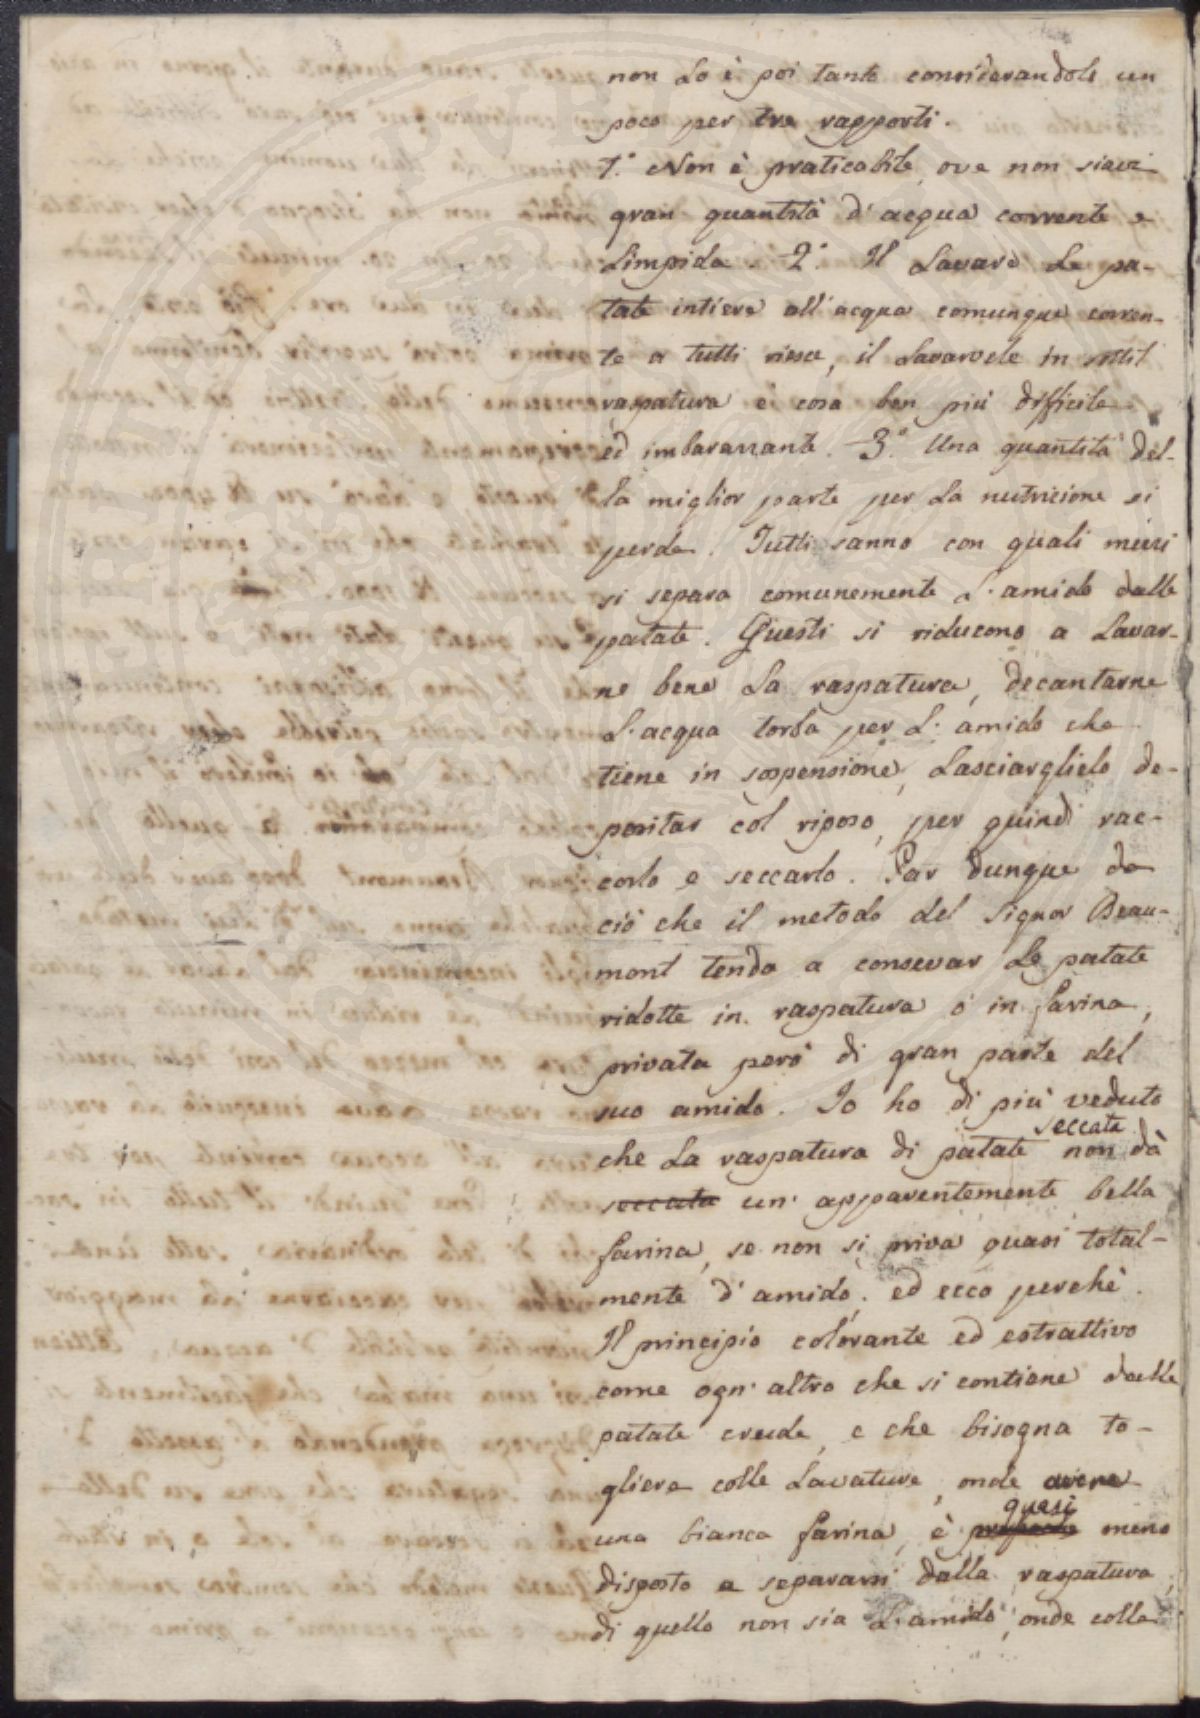 non lo è poi tanto considerandolo un
poco per tre rapporti.
1.° Non è praticabile, ove non siavi
gran quantità d'acqua corrente e
limpida. 2.° Il lavare le pa-
tate intiere all'acqua comunque corren-
te a tutti riesce, il lavarvele in sottil
raspatura è cosa ben più difficile
ed imbarazzante. 3.° Una quantità del-
la miglior parte per la nutrizione si
perde. Tutti sanno con quali mezzi
si separa comunemente l'amido dalle
patate. Questi si riducono a lavar-
ne bene la raspatura, decantarne
l'acqua torba per l'amido che
tiene in sospensione, lasciarglielo de-
positar col riposo, per quindi rac-
corlo e seccarlo. Par dunque da
ciò che il metodo del Signor Beau-
mont tenda a consevar le patate
ridotte in raspatura o in farina,
privata però di gran parte del
suo amido. Io ho di più veduto
che la raspatura di patate seccata non dà
seccata un' apparentemente bella
farina, se non si priva quasi total-
mente d'amido; ed ecco perchè.
Il principio colorante ed estrattivo
come ogn'altro che si contiene dalle
patate crude, e che bisogna to-
gliere colle lavature, onde avere
quasi
una bianca farina, è meno
disposto a separarsi dalla raspatura,
di quello non sia l'amido, onde colla